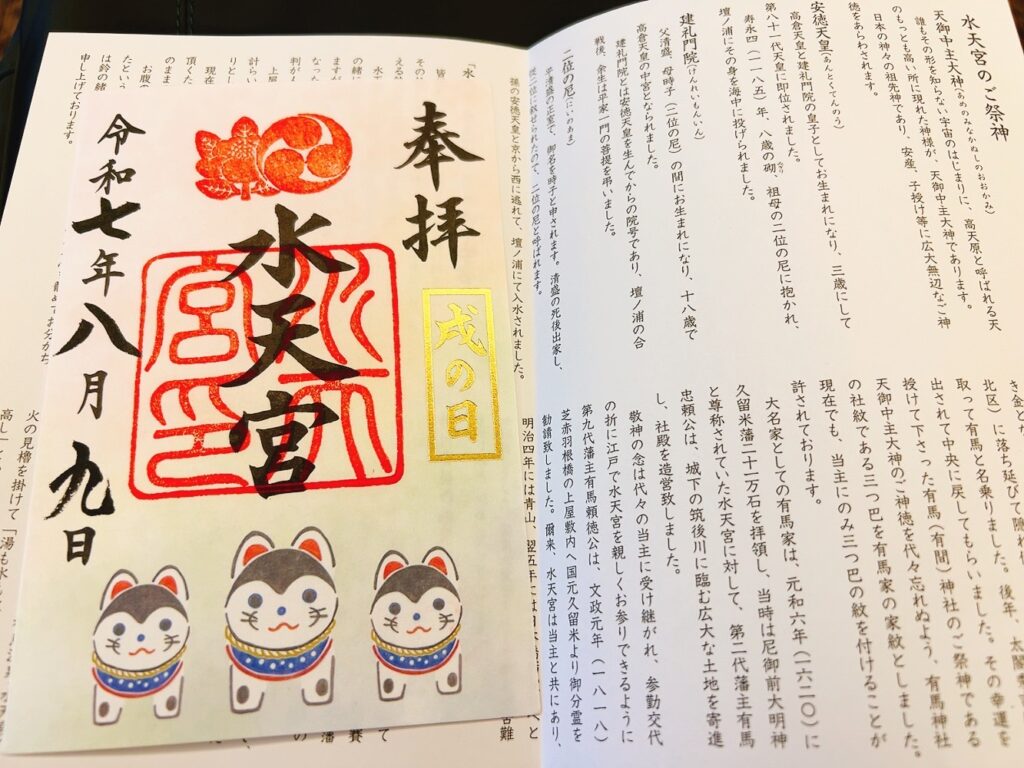 水天宮のご祭神
天御中主大神(あめのみなかぬしのおおかみ)
誰もその形を知らない宇宙のはじまりに、高天原と呼ばれる天
のもっとも高い所に現れた神様が、天御中主大神であります。
日本の神々の祖先神であり、安産、子授け等に広大無辺なご神
徳をあらわされます。
安徳天皇(あんとくてんのう)
高倉天皇と建礼門院の皇子としてお生まれになり、三歳にして
第八十一代天皇に即位されました。
寿永四(一一八五)年、八歳の砌、祖母の二位の尼に抱かれ、
壇ノ浦にその身を海中に投げられました。
建礼門院(けんれいもんいん)
父清盛、母時子(二位の尼)の間にお生まれになり、十八歳で
高倉天皇の中宮となられました。
建礼門院とは安徳天皇を生んでからの院号であり、壇ノ浦の合
戦後、余生は平家一門の菩提を弔いました。
二位の尼(にいのあま)
平清盛の正室で、御名を時子と申されます。清盛の死後出家し、
従二位に叙せられたので、二位の尼と呼ばれます。
孫の安徳天皇と京から西に逃れて、壇ノ浦にて入水されました。
北区)に落ち延びて隠れ住
取って有馬と名乗りました。後年、太閤
出されて中央に戻してもらいました。その幸運を
授けて下さった有馬(有間)神社のご祭神である
天御中主大神のご神徳を代々忘れぬよう、有馬神社
の社紋である三つ巴を有馬家の家紋としました。
現在でも、当主にのみ三つ巴の紋を付けることが
許されております。
大名家としての有馬家は、元和六年(一六二〇)に
久留米藩二十一万石を拝領し、当時は尼御前大明神
と尊称されていた水天宮に対して、第二代藩主有馬
忠頼公は、城下の筑後川に臨む広大な土地を寄進
し、社殿を造営致しました。
敬神の念は代々の当主に受け継がれ、参勤交代
の折に江戸で水天宮を親しくお参りできるように
第九代藩主有馬頼徳公は、文政元年(一八一八)
芝赤羽根橋の上屋敷内へ国元久留米より御分霊を
勧請致しました。爾来、水天宮は当主と共にあり、
明治四年には青山、翌五年には日本
奉拝
戌の日
水天宮
水天
宮印
令和七年八月九日
は鈴の緒
申し上げております。
火の見櫓を掛けて
高し